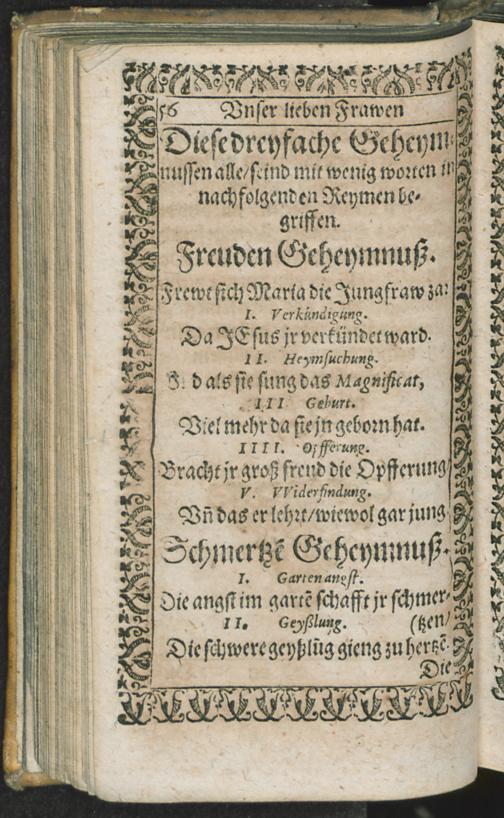 56 Vnser lieben Frawen
Diese dreyfache Geheym-
nussen alle/seind mit wenig worten in
nachfolgenden Reymen be-
griffen.
Freuden Geheymnuß.
Frewt sich Maria die Jungfraw zart
I. Verkündigung.
Da JEsus jr verkündet ward.
II. Heymsuchung.
V. d als sie sung das Magnificat,
III Geburt.
Viel mehr da sie jn geborn hat.
IIII. Opfferung.
Bracht jr groß freud die Opfferung/
V. VViderfindung.
Vñ das er lehrt/wiewol gar jung
Schmertzẽ Geheymnuß.
I. Garten angst.
Die angst im gartẽ schafft jr schmer-
II. Geyßlung. (tzen/
Die schwere geyßlũg gieng zu hertzẽ.
Die